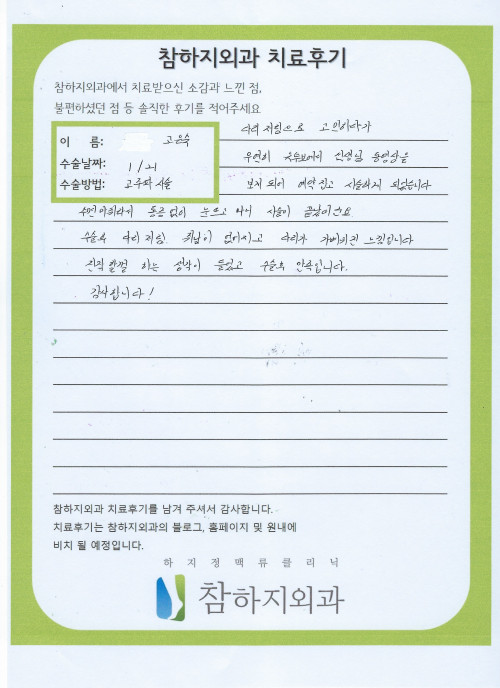 참하지외과 치료후기
참하지외과에서 치료받으신 소감과 느낀 점,
불편하셨던 점 등 솔직한 후기를 적어주세요
이 름: 고은숙
수술날짜: 1/21
수술방법: 고주파 시술
다리 저림으로 고민하다가
우연히 유튜브에서 선생님 동영상을
보게 되어 예약 잡고 시술하게 되었습니다
수면마취라서 통증 없이 눈뜨고 나니 시술이 끝났더군요
수술후 다리 저림, 쥐남이 없어지고 다리가 가벼워진 느낌입니다
진작 할껄 하는 생각이 들었고 수술후 만족입니다.
감사합니다!
참하지외과 치료후기를 남겨 주셔서 감사합니다.
치료후기는 참하지외과의 블로그, 홈페이지 및 원내에
비치 될 예정입니다.
하지정맥류클리닉
참하지외과